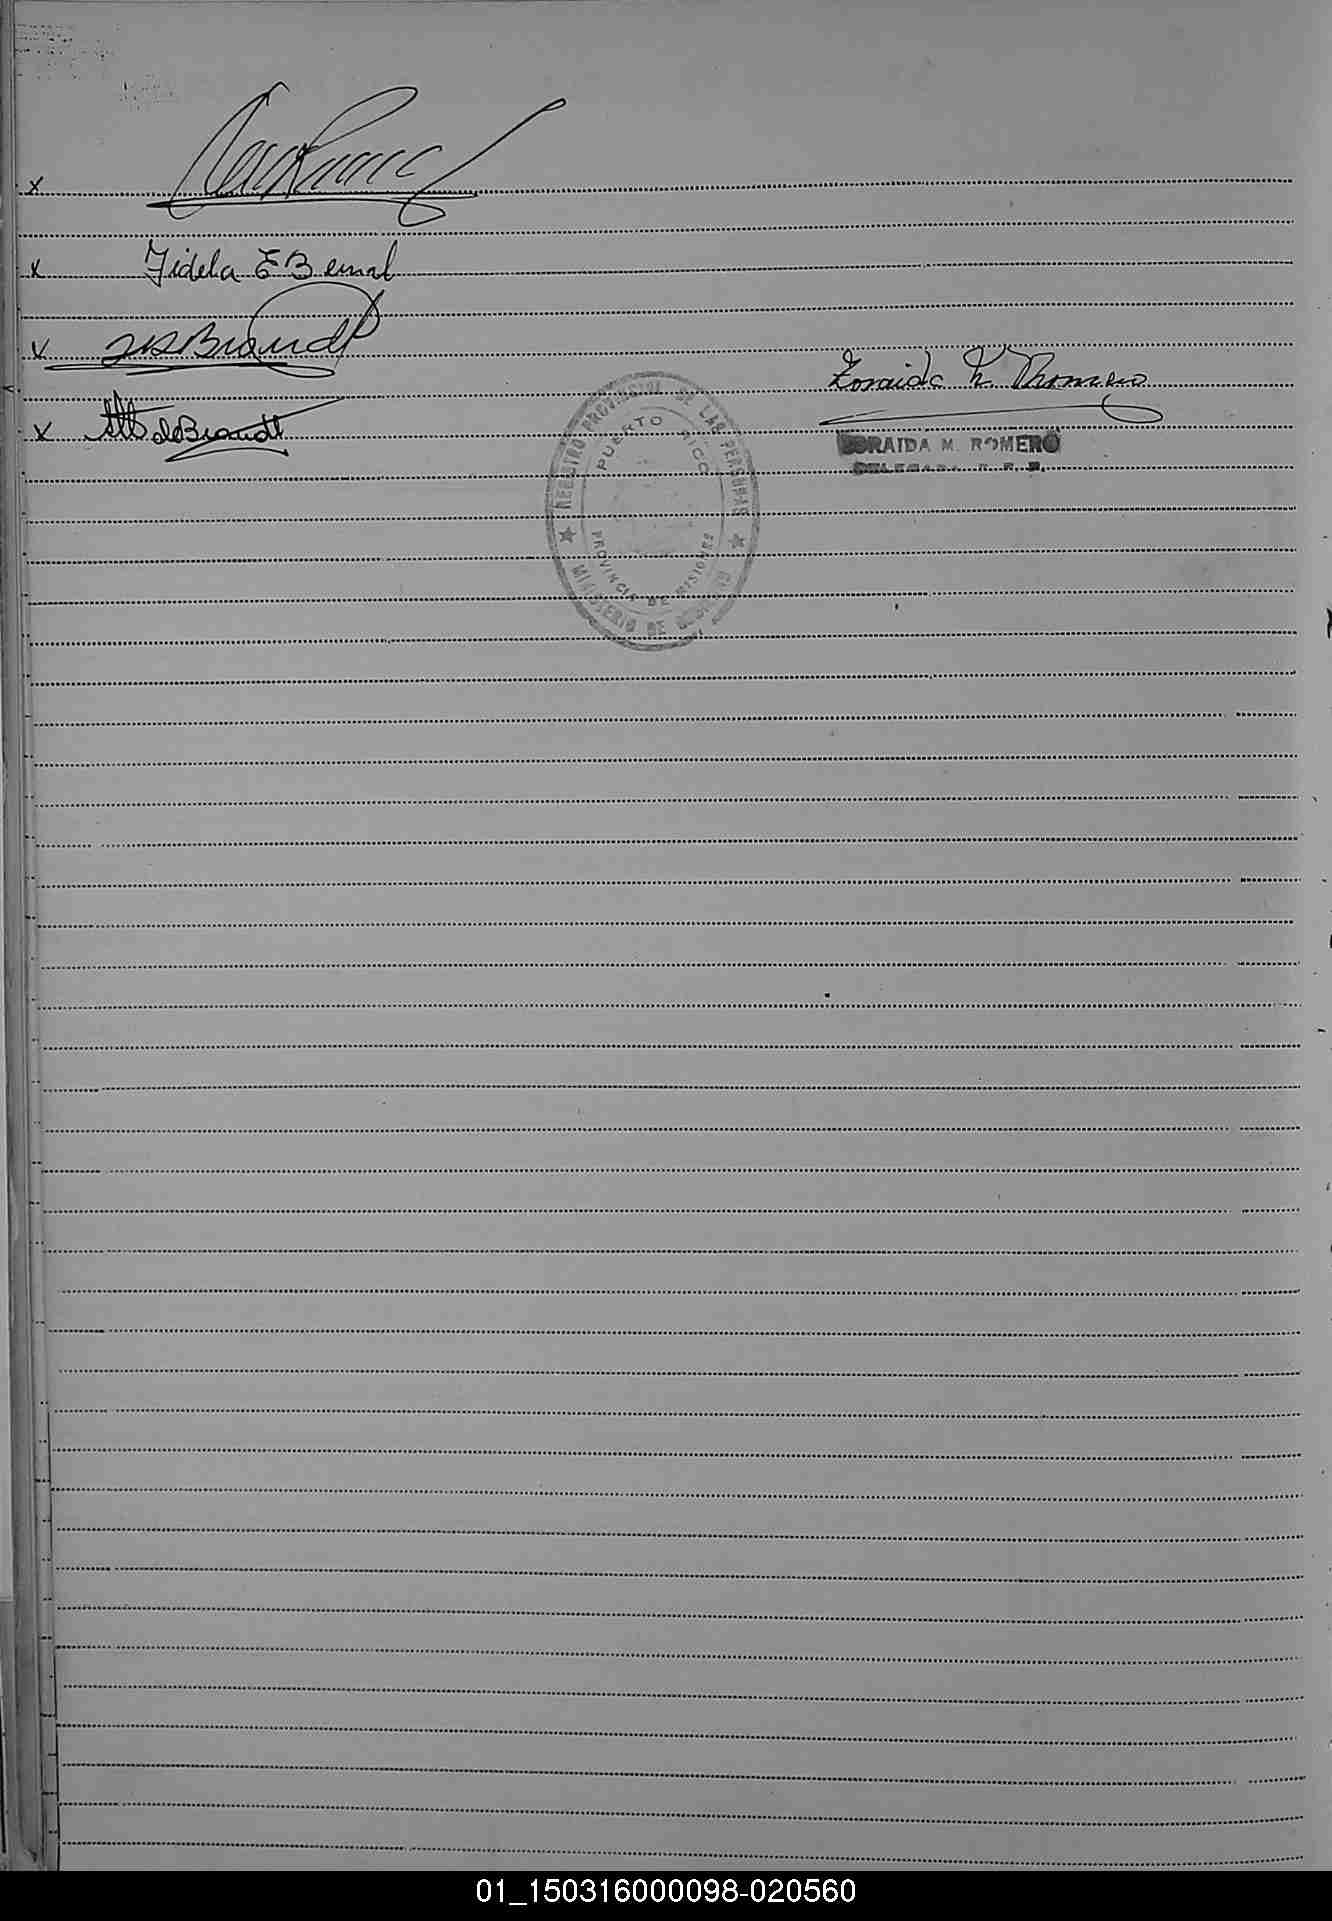 x
x Fidela E Bernal
x Brandt
x de Brandt
Zoraida M Romero
ZORAIDA M. ROMERO
DELEGADA R. P. P.
REGISTRO PROVINCIAL DE LAS PERSONAS
PUERTO RICO
PROVINCIA DE MISIONES
MINISTERIO DE GOBIERNO
01_150316000098-020560